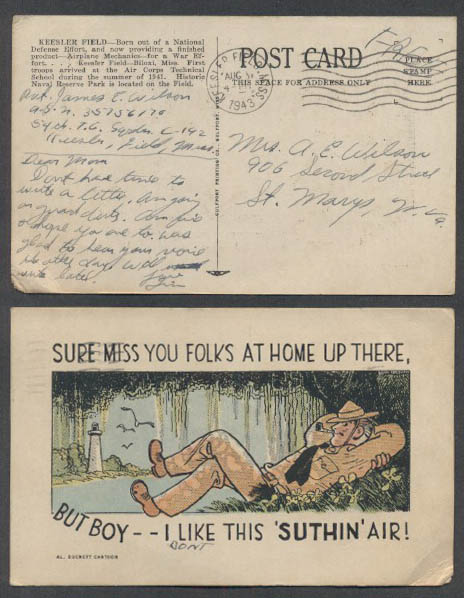 KEESLER FIELD—Born out of a National
Defense Effort, and now providing a finished
product—Airplane Mechanics—for a War Ef-
fort. . . Keesler Field—Biloxi, Miss. First
troops arrived at the Air Corps Technical
School during the summer of 1941. Historic
Naval Reserve Park is located on the Field.
Pvt. James E. Wilson
A.S.N. 35756170
Sqdn. C-142
Keesler Field, Miss.
Dear Mom
Dont have time to
write a letter. Am going
on guard duty. Am fine
hope you are to. was
glad to hear your voice
the other day. Will
write later. Love
Jim
GULFPORT PRINTING CO., GULFPORT, MISS.
POST CARD
THIS SPACE FOR ADDRESS ONLY
KEESLER FIELD MISS.
AUG
1943
Free
PLACE
STAMP
HERE.
Mrs. A. E. Wilson
906 Second Street
St. Marys, W. Va.
SURE MISS YOU FOLKS AT HOME UP THERE,
BUT BOY - - I LIKE THIS 'SUTHIN' AIR!
DONT
AL. EVERETT CARTOON